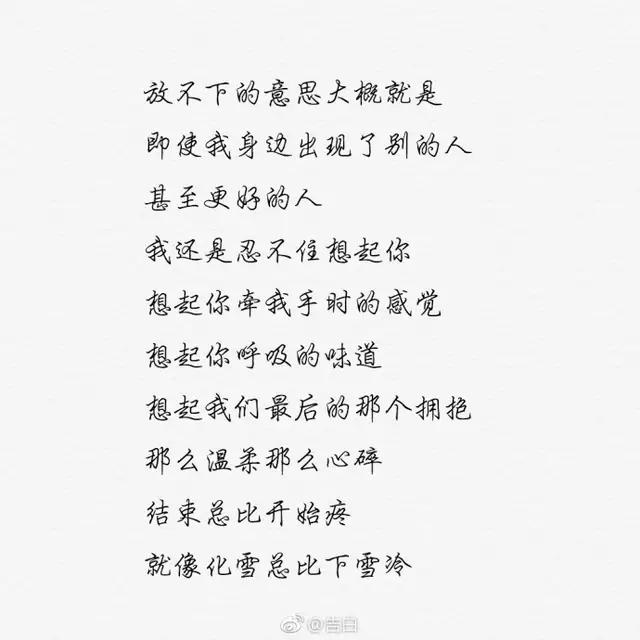 放不下的意思大概就是
即使我身边出现了别的人
甚至更好的人
我还是忍不住想起你
想起你牵我手时的感觉
想起你呼吸的味道
想起我们最后的那个拥抱
那么温柔那么心碎
结束总比开始疼
就像化雪总比下雪冷
@告白